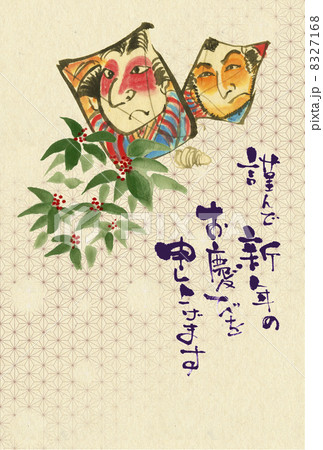 謹んで新年の
お慶びを
申し上げます
pixta.jp - 8327168